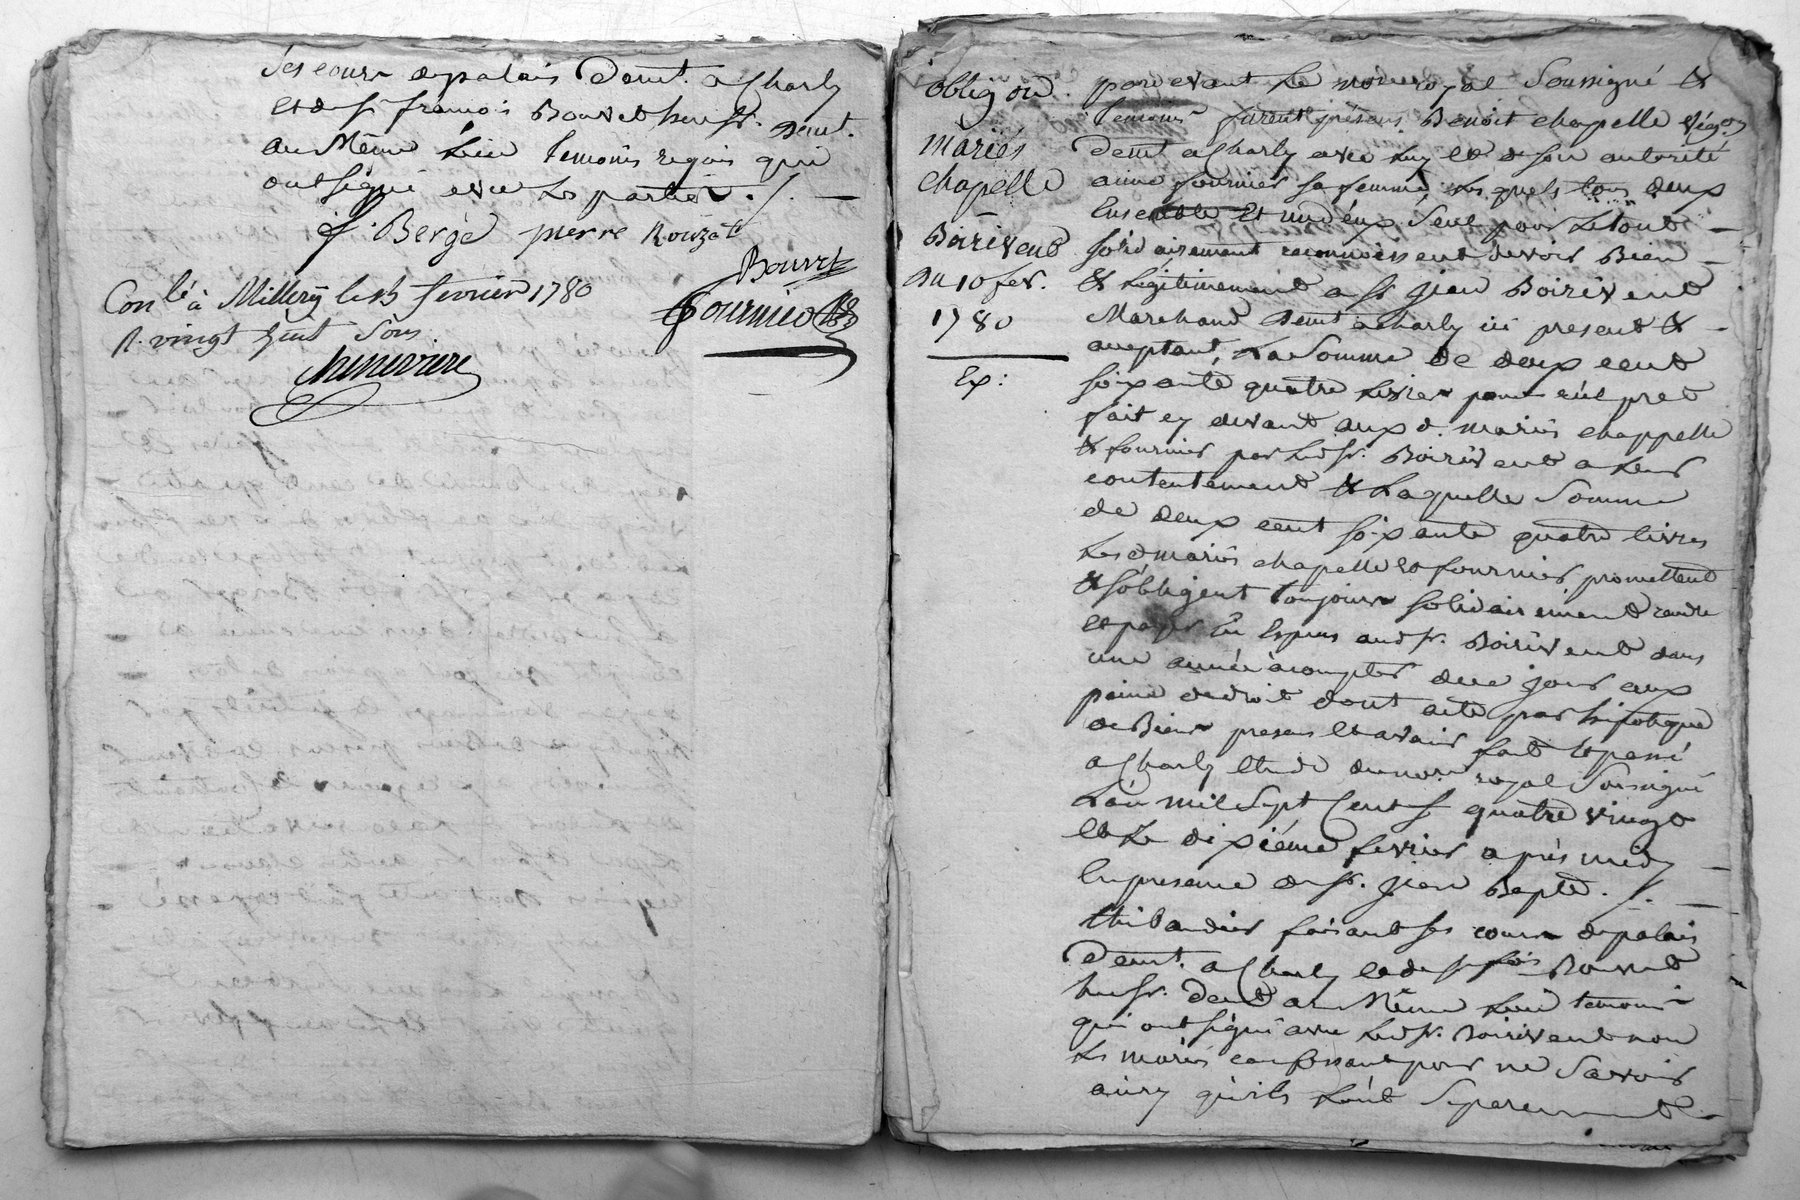 ses cours de palais demt. a Charly
et de sr. françois Bouvet huissr. demt.
au Même Lieu temoins requis qui
ont signé avec Les parties ./. —
f. Bergé pierre Rouzat
Bouvet
Conlé à Millery le 15 fevrier 1780
R. vingt huit Sous
fournier
obligon.
mariés
chapelle
Boirivent
Du 10 fev.
1780
Ex:
pardevant Le notre royal Soussigné &
temoins furent présens Benoit chapelle vigon
demt a Charly avec Luy et de son autorité
anne fournier sa femme, Lesquels tous deux
Ensemble Et un d'eux Seul pour Le tout —
solidairement reconnoissent devoir Bien —
& Legitimement a sr. jean Boirivent
Marchand demt a Charly ici present & —
acceptant, La Somme de deux cent
soixante quatre Livres pour réel pret
fait cy devant aux d. mariés chappelle
& fournier par Led sr. Boirivent a Leur
contentement & Laquelle Somme
de deux cent soixante quatre livres
Les d mariés chapelle et fournier promettent
& s'obligent toujours solidairement rendre
et payer En Especes aud sr. Boirivent dans
une année a compter de ce jour aux
peine de droit dont acte par hipoteque
de Biens presens et avenir fait et passé
a Charly Etude du notre royal Soussigné
L'an mil Sept Cent quatre vingt
et Le dixiéme fevrier après midy —
En presence de sr. jean Bapte. ./. —
thibaudier faisant ses cours de palais
demt. a Charly et de sr. fois Bouvet
huissr. demt au Même Lieu temoins
qui ont signé avec Led sr. Boirivent non
Les mariés confessant pour ne Savoir
ainsy qu'ils L'ont Separement —